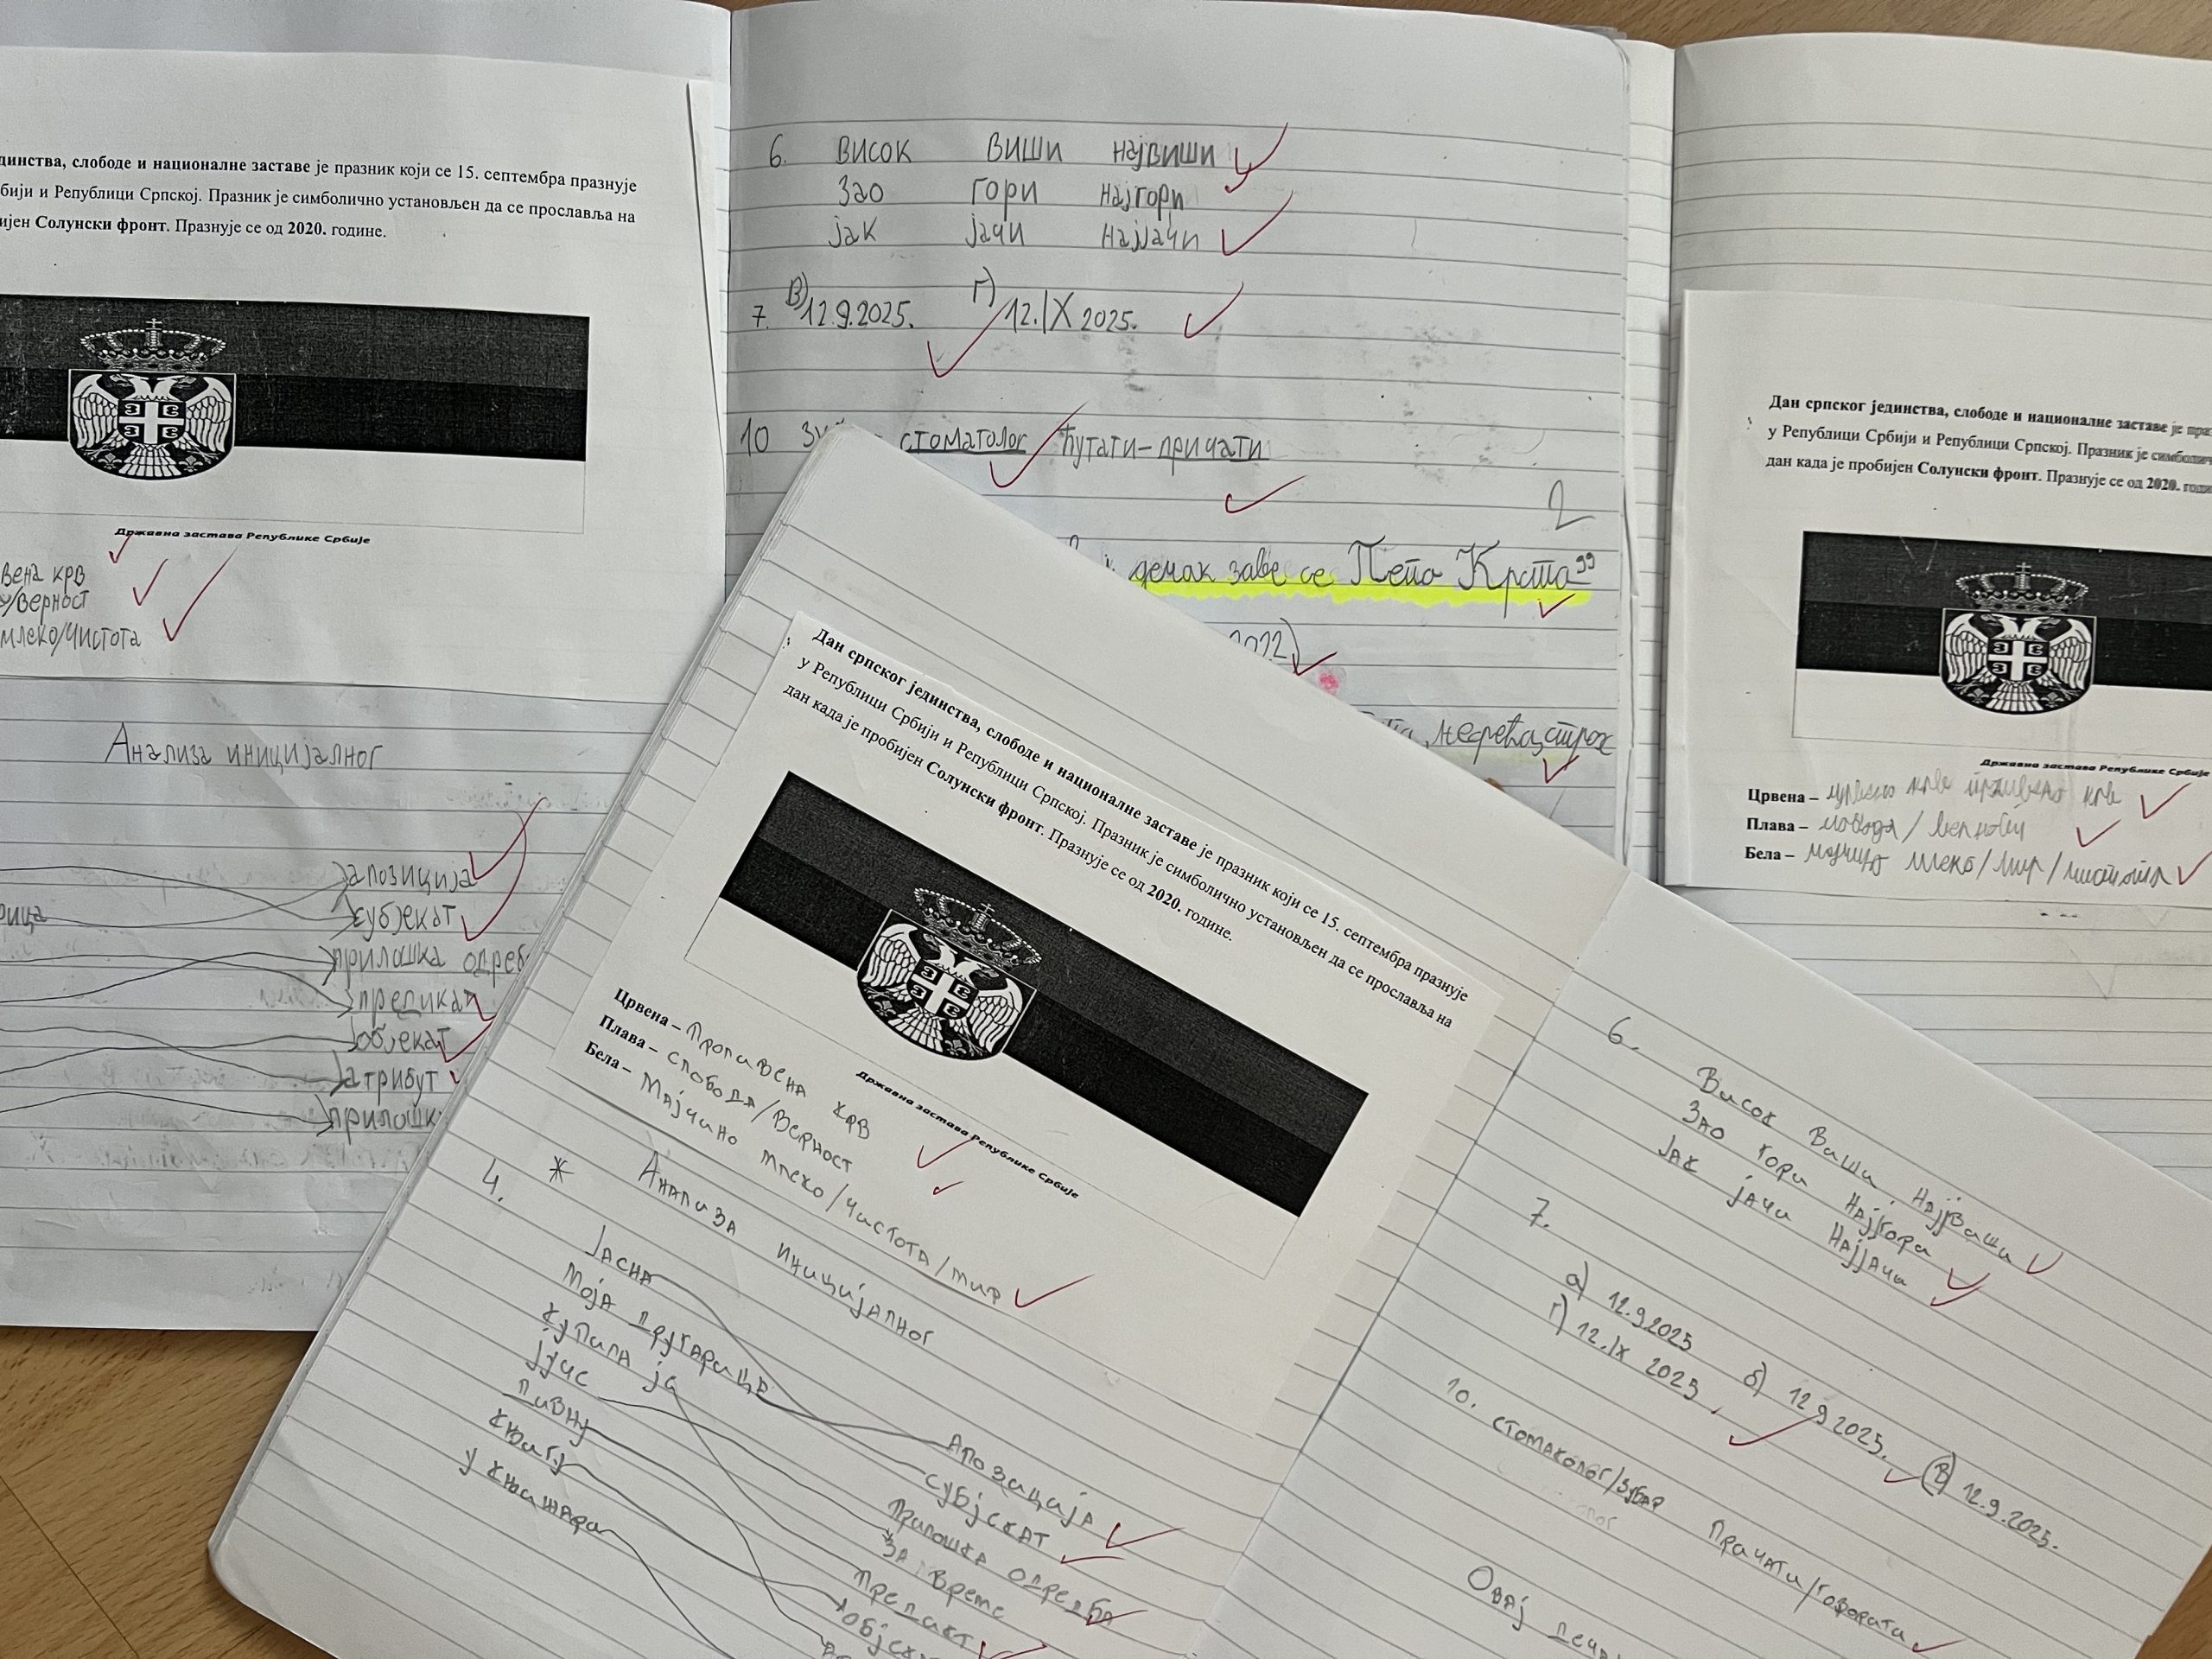 динства, слободе и националне заставе је празник који се 15. септембра празнује
бији и Републици Српској. Празник је симболично установљен да се прославља на
ијен Солунски фронт. Празнује се од 2020. године.
Државна застава Републике Србије
вена крв
у/верност
млеко/чистота
Анализа иницијалног
апозиција
субјекат
рица
прилошка одреб
предикат
објекат
атрибут
прилошк
6. висок виши највиши
зао гори најгори
јак јачи најјачи
7. в) 12.9.2025. г) 12.IX 2025.
10 стоматолог ћутати-причати
2
дечак зове се Пепо Крста"
2022)
несрећа, страх
Дан српског јединства, слободе и националне заставе је пра
у Републици Србији и Републици Српској. Празник је симболич
дан када је пробијен Солунски фронт. Празнује се од 2020. годи
Државна застава Републике Србије
Црвена – крв
Плава – слобода/верност
Бела – мајчино млеко/мир/чистота
Дан српског јединства, слободе и националне заставе је празник који се 15. септембра празнује
у Републици Србији и Републици Српској. Празник је симболично установљен да се прославља на
дан када је пробијен Солунски фронт. Празнује се од 2020. године.
Државна застава Републике Србије
Црвена – Проливена крв
Плава – слобода/верност
Бела – Мајчино млеко/чистота/мир
4. * Анализа иницијалног
Јасна
Моја другарица
купила је
јуче
дивну
књигу
у књижари
Апозиција
субјекат
Прилошка одредба
за време
Предикат
објек
6. Висок Виши Највиши
Зао гори Најгори
Јак јачи Најјачи
7. а) 12.9.2025 б) 12.9.2025. в) 12.9.2025.
г) 12.IX 2025.
10. стоматолог/зубар Причати/говорити
Овај деча